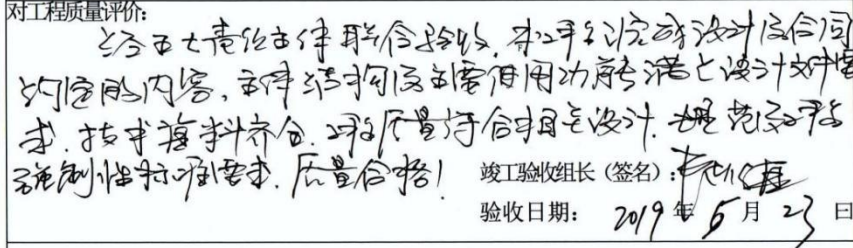 对工程质量评价:
经五大责任主体联合验收,本工程已完成设计及合同
约定的内容,主体结构及主要使用功能满足设计文件要
求,技术资料齐全,工程质量符合相关设计、规范及工程
强制性标准要求,质量合格!
竣工验收组长(签名):
验收日期: 2019 年 5 月 23 日